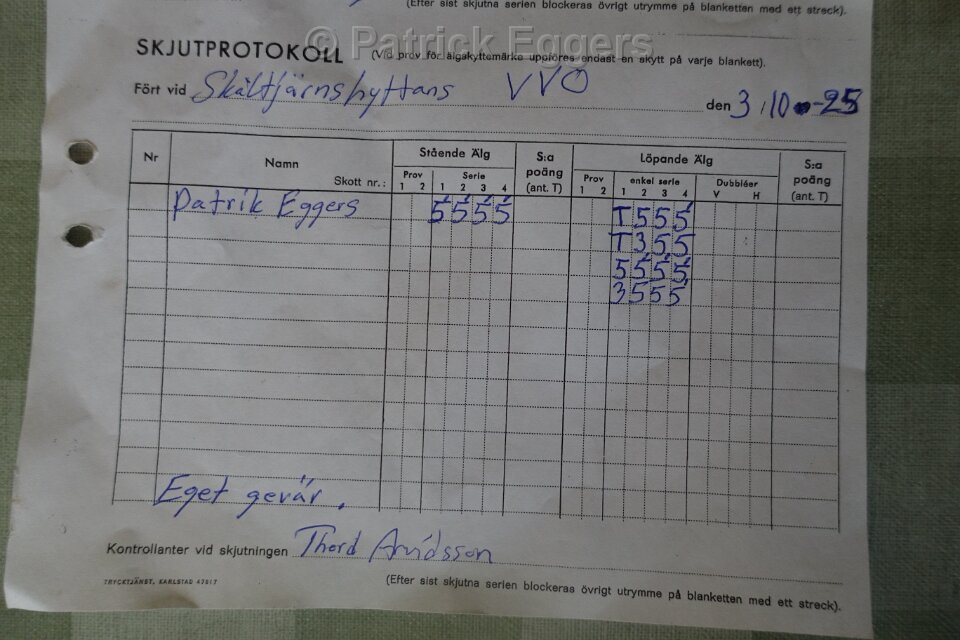 (Efter sist skjutna serien blockeras övrigt utrymme på blanketten med ett streck).
© Patrick Eggers
SKJUTPROTOKOLL (Vid prov för älgskyttemärke uppföres endast en skytt på varje blankett).
Fört vid Skältjärnshyttans VVO den 3/10 -25
Nr Namn Stående Älg S:a poäng (ant. T) Löpande Älg S:a poäng (ant. T)
Skott nr.: Prov Serie Prov enkel serie Dubbléer
1 2 1 2 3 4 1 2 1 2 3 4 V H
Patrik Eggers 5 5 5 5 T 5 5 5
T 3 5 5
5 5 5 5
3 5 5 5
Eget gevär.
Kontrollanter vid skjutningen Thord Arvidsson
TRYCKTJÄNST, KARLSTAD 47017
(Efter sist skjutna serien blockeras övrigt utrymme på blanketten med ett streck).